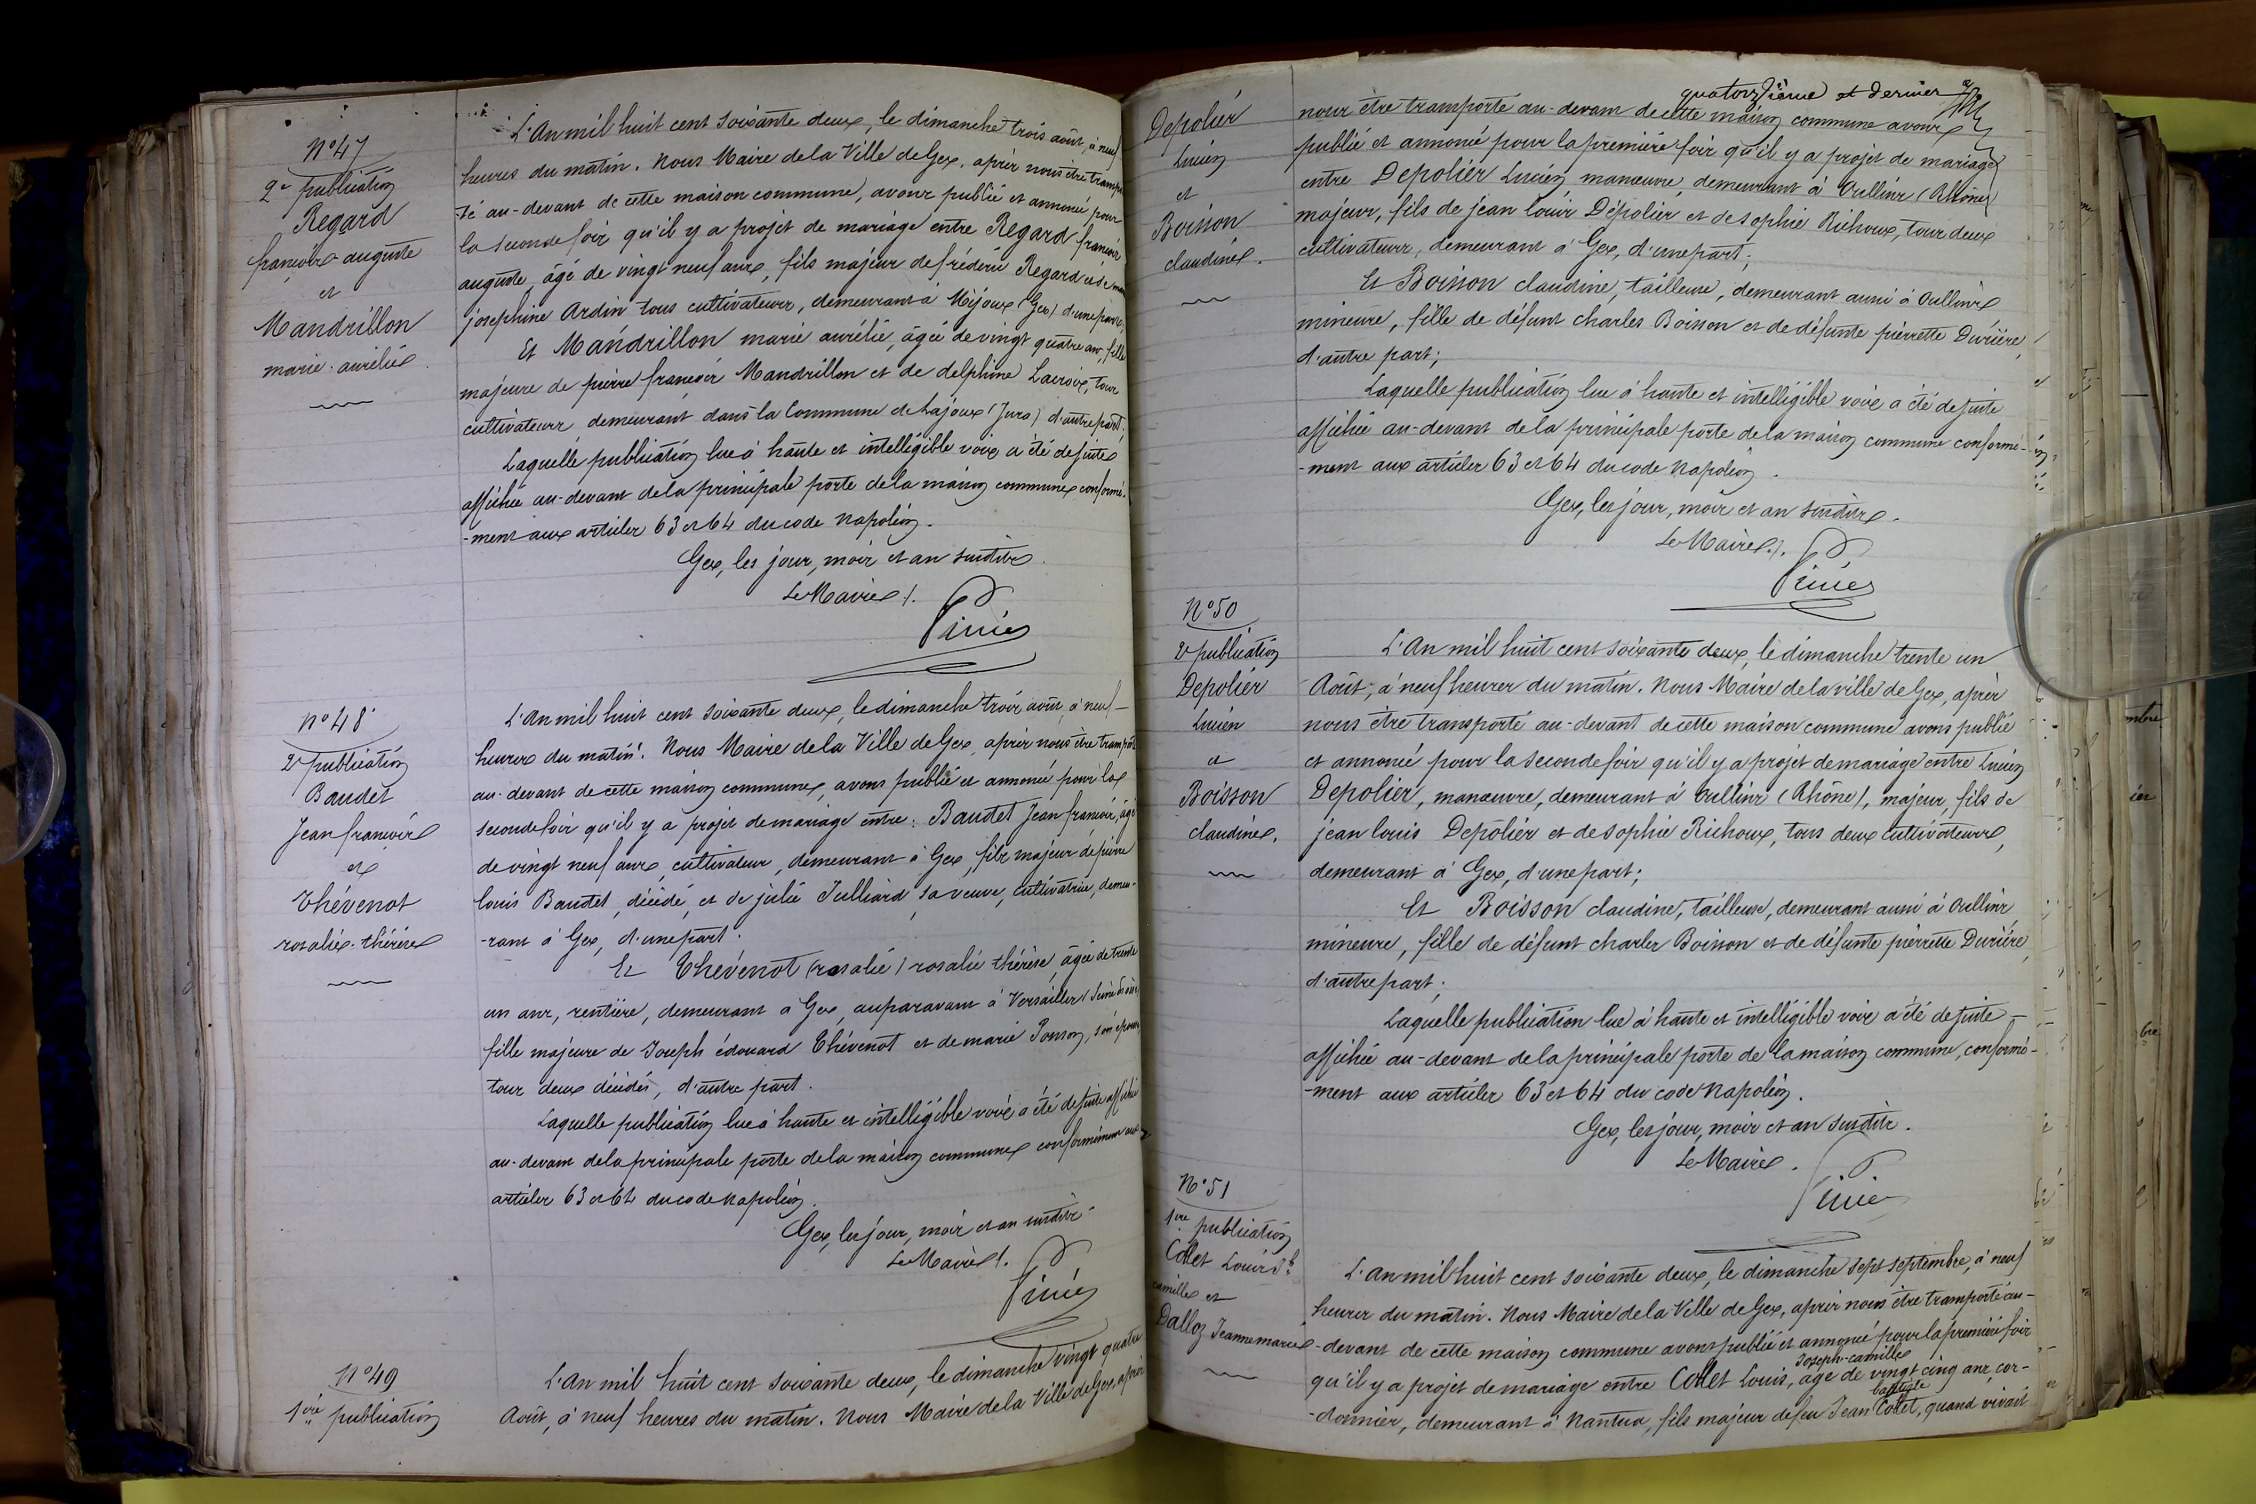 N° 47
2e publication
Regard
françois auguste
et
Mandrillon
marie aurélie
L'An mil huit cent soixante deux, le dimanche trois août, à neuf
heures du matin. Nous Maire de la Ville de Gex, après nous être transpor
-té au-devant de cette maison commune, avons publié et annoncé pour
la seconde fois qu'il y a projet de mariage entre Regard françois
auguste, âgé de vingt neuf ans, fils majeur de frédéric Regard et de marie
josephine Ardin tous cultivateurs, demeurant à Mijoux (Gex) d'une part;
Et Mandrillon marie aurélie, âgée de vingt quatre ans, fille
majeure de pierre françois Mandrillon et de delphine Lacroix, tous
cultivateurs demeurant dans la Commune de Lajoux (Jura) d'autre part.
Laquelle publication lue à haute et intelligible voix a été de suite
affichée au-devant de la principale porte de la maison commune conformé-
-ment aux articles 63 et 64 du code Napoléon.
Gex, les jour, mois et an susdits.
Le Maire /.
N° 48
2e publication
Baudet
Jean françois
et
Thévenot
rosalie-thérèse
L'An mil huit cent soixante deux, le dimanche trois août, à neuf
heures du matin. Nous Maire de la Ville de Gex, après nous être transporté
au-devant de cette maison commune, avons publié et annoncé pour la
seconde fois qu'il y a projet de mariage entre: Baudet Jean françois, âgé
de vingt neuf ans, cultivateur, demeurant à Gex, fils majeur de pierre
louis Baudet, décédé, et de julie Julliard, sa veuve, cultivatrice, demeu-
-rant à Gex, d'une part.
Et Thévenot (rosalie) rosalie thérèse, âgée de trente
un ans, rentière, demeurant à Gex, auparavant à Versailles (Seine et oise)
fille majeure de Joseph édouard Thévenot et de marie Ponson, son épouse
tous deux décédés, d'autre part.
Laquelle publication lue à haute et intelligible voix a été de suite affichée
au-devant de la principale porte de la maison commune conformément aux
articles 63 et 64 du code Napoléon.
Gex, les jour, mois et an susdits.
Le Maire /.
N° 49
1ère publication
L'An mil huit cent soixante deux, le dimanche vingt quatre
Août, à neuf heures du matin. Nous Maire de la Ville de Gex, après
Depolier
Lucien
et
Boisson
claudine.
quatorzième et dernier
nous être transporté au-devant de cette maison commune avons
publié et annoncé pour la première fois qu'il y a projet de mariage
entre Depolier Lucien, manœuvre, demeurant à Oullins (Rhône)
majeur, fils de jean louis Dépolier et de sophie Richoux, tous deux
cultivateurs, demeurant à Gex, d'une part;
Et Boisson claudine, tailleuse, demeurant aussi à Oullins
mineure, fille de défunt charles Boisson et de défunte pierrette Durière,
d'autre part;
Laquelle publication lue à haute et intelligible voix a été de suite
affichée au-devant de la principale porte de la maison commune conformé-
-ment aux articles 63 et 64 du code Napoléon.
Gex, les jour, mois et an susdits.
Le Maire /.
N° 50
2e publication
Depolier
Lucien
et
Boisson
claudine.
L'An mil huit cent soixante deux, le dimanche trente un
Août, à neuf heures du matin. Nous Maire de la ville de Gex, après
nous être transporté au-devant de cette maison commune avons publié
et annoncé pour la seconde fois qu'il y a projet de mariage entre Lucien
Depolier, manœuvre, demeurant à Oullins (Rhône), majeur, fils de
jean louis Depolier et de sophie Richoux, tous deux cultivateurs,
demeurant à Gex, d'une part;
Et Boisson claudine, tailleuse, demeurant aussi à Oullins
mineure, fille de défunt charles Boisson et de défunte pierrette Durière,
d'autre part;
Laquelle publication lue à haute et intelligible voix a été de suite
affichée au-devant de la principale porte de la maison commune, conformé-
-ment aux articles 63 et 64 du code Napoléon.
Gex, les jour, mois et an susdits.
Le Maire.
N° 51
1ère publication
Collet Louis Jh
camille et
Dalloz Jeanne marie
L'An mil huit cent soixante deux, le dimanche sept septembre, à neuf
heures du matin. Nous Maire de la Ville de Gex, après nous être transporté au-
-devant de cette maison commune avons publié et annoncé pour la première fois
Joseph-camille
qu'il y a projet de mariage entre Collet Louis, âgé de vingt cinq ans, cor-
baptiste
-donnier, demeurant à Nantua, fils majeur de feu Jean Collet, quand vivait